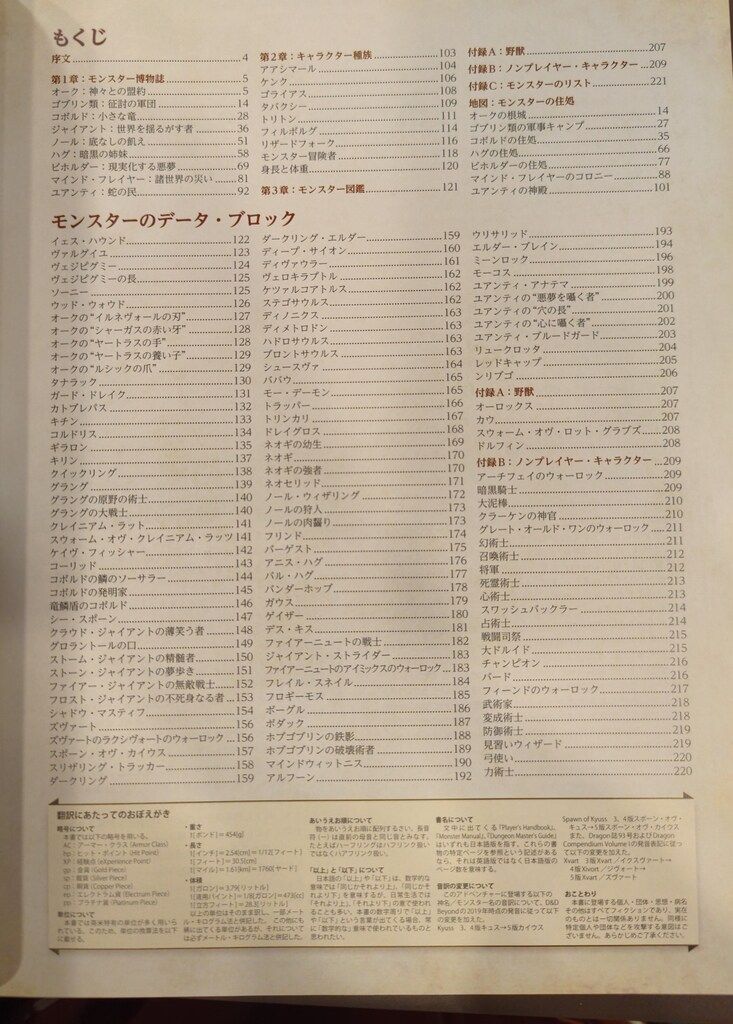 もくじ
序文 4
第1章：モンスター博物誌 5
オーク：神々との盟約 5
ゴブリン類：征討の軍団 14
コボルド：小さな竜 28
ジャイアント：世界を揺るがす者 36
ノール：底なしの飢え 51
ハグ：暗黒の姉妹 58
ビホルダー：現実化する悪夢 69
マインド・フレイヤー：諸世界の災い 81
ユアンティ：蛇の民 92
第2章：キャラクター種族 103
アアシマール 104
ケンク 106
ゴライアス 108
タバクシー 109
トリトン 111
フィルボルグ 114
リザードフォーク 116
モンスター冒険者 118
身長と体重 120
第3章：モンスター図鑑 121
付録A：野獣 207
付録B：ノンプレイヤー・キャラクター 209
付録C：モンスターのリスト 221
地図：モンスターの住処
オークの根城 14
ゴブリン類の軍事キャンプ 27
コボルドの住処 35
ハグの住処 66
ビホルダーの住処 77
マインド・フレイヤーのコロニー 88
ユアンティの神殿 101
モンスターのデータ・ブロック
イェス・ハウンド 122
ヴァルグイユ 123
ヴェジピグミー 124
ヴェジピグミーの長 125
ソーニー 125
ウッド・ウォウド 126
オークの“イルネヴォールの刃” 127
オークの“シャーガスの赤い牙” 128
オークの“ヤートラスの手” 128
オークの“ヤートラスの養い子” 129
オークの“ルシックの爪” 129
タナラック 130
ガード・ドレイク 131
カトブレパス 132
キチン 133
コルドリス 134
ギラロン 135
キリン 137
クイックリング 138
グラング 139
グラングの原野の術士 140
グラングの大戦士 140
クレイニアム・ラット 141
スウォーム・オヴ・クレイニアム・ラッツ 141
ケイヴ・フィッシャー 142
コーリッド 143
コボルドの鱗のソーサラー 144
コボルドの発明家 145
竜鱗盾のコボルド 146
シー・スポーン 147
クラウド・ジャイアントの薄笑う者 148
グロラントールの口 149
ストーム・ジャイアントの精髄者 150
ストーン・ジャイアントの夢歩き 151
ファイアー・ジャイアントの無敵戦士 152
フロスト・ジャイアントの不死身なる者 153
シャドウ・マスティフ 154
ズヴァート 156
ズヴァートのラクシヴォートのウォーロック 156
スポーン・オヴ・カイウス 157
スリザリング・トラッカー 158
ダークリング 159
ダークリング・エルダー 159
ディープ・サイオン 160
ディヴァウラー 161
ヴェロキラプトル 162
ケツァルコアトルス 162
ステゴサウルス 162
ディノニクス 163
ディメトロドン 163
ハドロサウルス 163
ブロントサウルス 163
シュースヴァ 164
ババウ 165
モー・デーモン 165
トラッパー 166
トリンカリ 167
ドレイグロス 168
ネオギの幼生 169
ネオギ 170
ネオギの強者 170
ネオセリッド 171
ノール・ウィザリング 172
ノールの狩人 173
ノールの肉齧り 173
フリンド 174
バーゲスト 175
アニス・ハグ 176
バル・ハグ 177
バンダーホッブ 178
ガウス 179
ゲイザー 180
デス・キス 181
ファイアーニュートの戦士 182
ジャイアント・ストライダー 183
ファイアーニュートのアイミックスのウォーロック 183
フレイル・スネイル 184
フロギーモス 185
ボーグル 186
ボダック 187
ホブゴブリンの鉄影 188
ホブゴブリンの破壊術者 189
マインドウィットニス 190
アルフーン 192
ウリサリッド 193
エルダー・ブレイン 194
ミーンロック 196
モーコス 198
ユアンティ・アナテマ 199
ユアンティの“悪夢を囁く者” 200
ユアンティの“穴の長” 201
ユアンティの“心に囁く者” 202
ユアンティ・ブルードガード 203
リュークロッタ 204
レッドキャップ 205
ンリブゴ 206
付録A：野獣 207
オーロックス 207
カウ 207
スウォーム・オヴ・ロット・グラブズ 208
ドルフィン 208
付録B：ノンプレイヤー・キャラクター 209
アーチフェイのウォーロック 209
暗黒騎士 209
大泥棒 210
クラーケンの神官 210
グレート・オールド・ワンのウォーロック 211
幻術士 211
召喚術士 212
将軍 212
死霊術士 213
心術士 213
スワッシュバックラー 214
占術士 214
戦闘司祭 215
大ドルイド 215
チャンピオン 216
バード 216
フィーンドのウォーロック 217
武術家 218
変成術士 218
防御術士 219
見習いウィザード 219
弓使い 220
力術士 220
翻訳にあたってのおぼえがき
略号について
本書では以下の略号を用いる。
AC：アーマー・クラス (Armor Class)
hp：ヒット・ポイント (Hit Point)
XP：経験点 (eXperience Point)
gp：金貨 (Gold Piece)
sp：銀貨 (Silver Piece)
cp：銅貨 (Copper Piece)
ep：エレクトラム貨 (Electrum Piece)
pp：プラチナ貨 (Platinum Piece)
単位について
本書では帝米特有の単位が多く用いら
れている。このため、単位の換算法を以下
に載せる。
・重さ
1[ポンド]=454[g]
・長さ
1[インチ]=2.54[cm]=1/12[フィート]
1[フィート]=30.5[cm]
1[マイル]=1.61[km]=1760[ヤード]
・体積
1[ガロン]=3.79[リットル]
1[液用パイント]=1/8[ガロン]=473[cc]
1[立方フィート]=28.3[リットル]
以上の単位はそのまま訳し、一部メート
ル・キログラム法と併記した。この他にも
稀に出てくる単位があるが、それについて
は必ずメートル・キログラム法と併記した。
あいうえお順について
物をあいうえお順に配列するさい、長音
符(ー)は直前の母音と同じ音とみなす。
たとえばハーフリングはハフリング扱い
ではなくハアフリング扱い。
「以上」と「以下」について
日本語の「以上」や「以下」は、数学的な
意味では「同じかそれより上」、「同じかそ
れより下」を意味しますが、日常生活では
「それより上」、「それより下」の意で使われ
ることも多い。本書の数字周りで「以上」
や「以下」という言葉が出てくる場合、常
に「数学的な」意味で使われているものと
思われたい。
書名について
文中に出てくる『Player's Handbook』、
『Monster Manual』、『Dungeon Master's Guide』
はいずれも日本語版を指す。これらの書
物の特定ページを参照という記述がある
なら、それは英語版ではなく日本語版のペー
ジ数を意味する。
音訳の変更について
このアドベンチャーに登場する以下の
神名／モンスター名の音訳について、D&D
Beyondの2019年時点の発音に従って以下
の変更を加えた。
Kyuss 3、4版キュス→5版カイウス
Spawn of Kyuss 3、4版スポーン・オヴ・
キュス→5版スポーン・オヴ・カイウス
また、Dragon誌93号およびDragon
Compendium Volume Iの発音表記に従っ
て以下の変更を加えた。
Xvart 3版Xvart／イクスヴァート→
4版Xivort／ジヴォート→
5版Xvart／ズヴァート
おことわり
本書に登場する個人・団体・思想・病名
その他はすべてフィクションであり、実在
のものとは一切関係ありません。同様に、
特定個人や団体などを攻撃する意図はご
ざいません。あらかじめご了承ください。